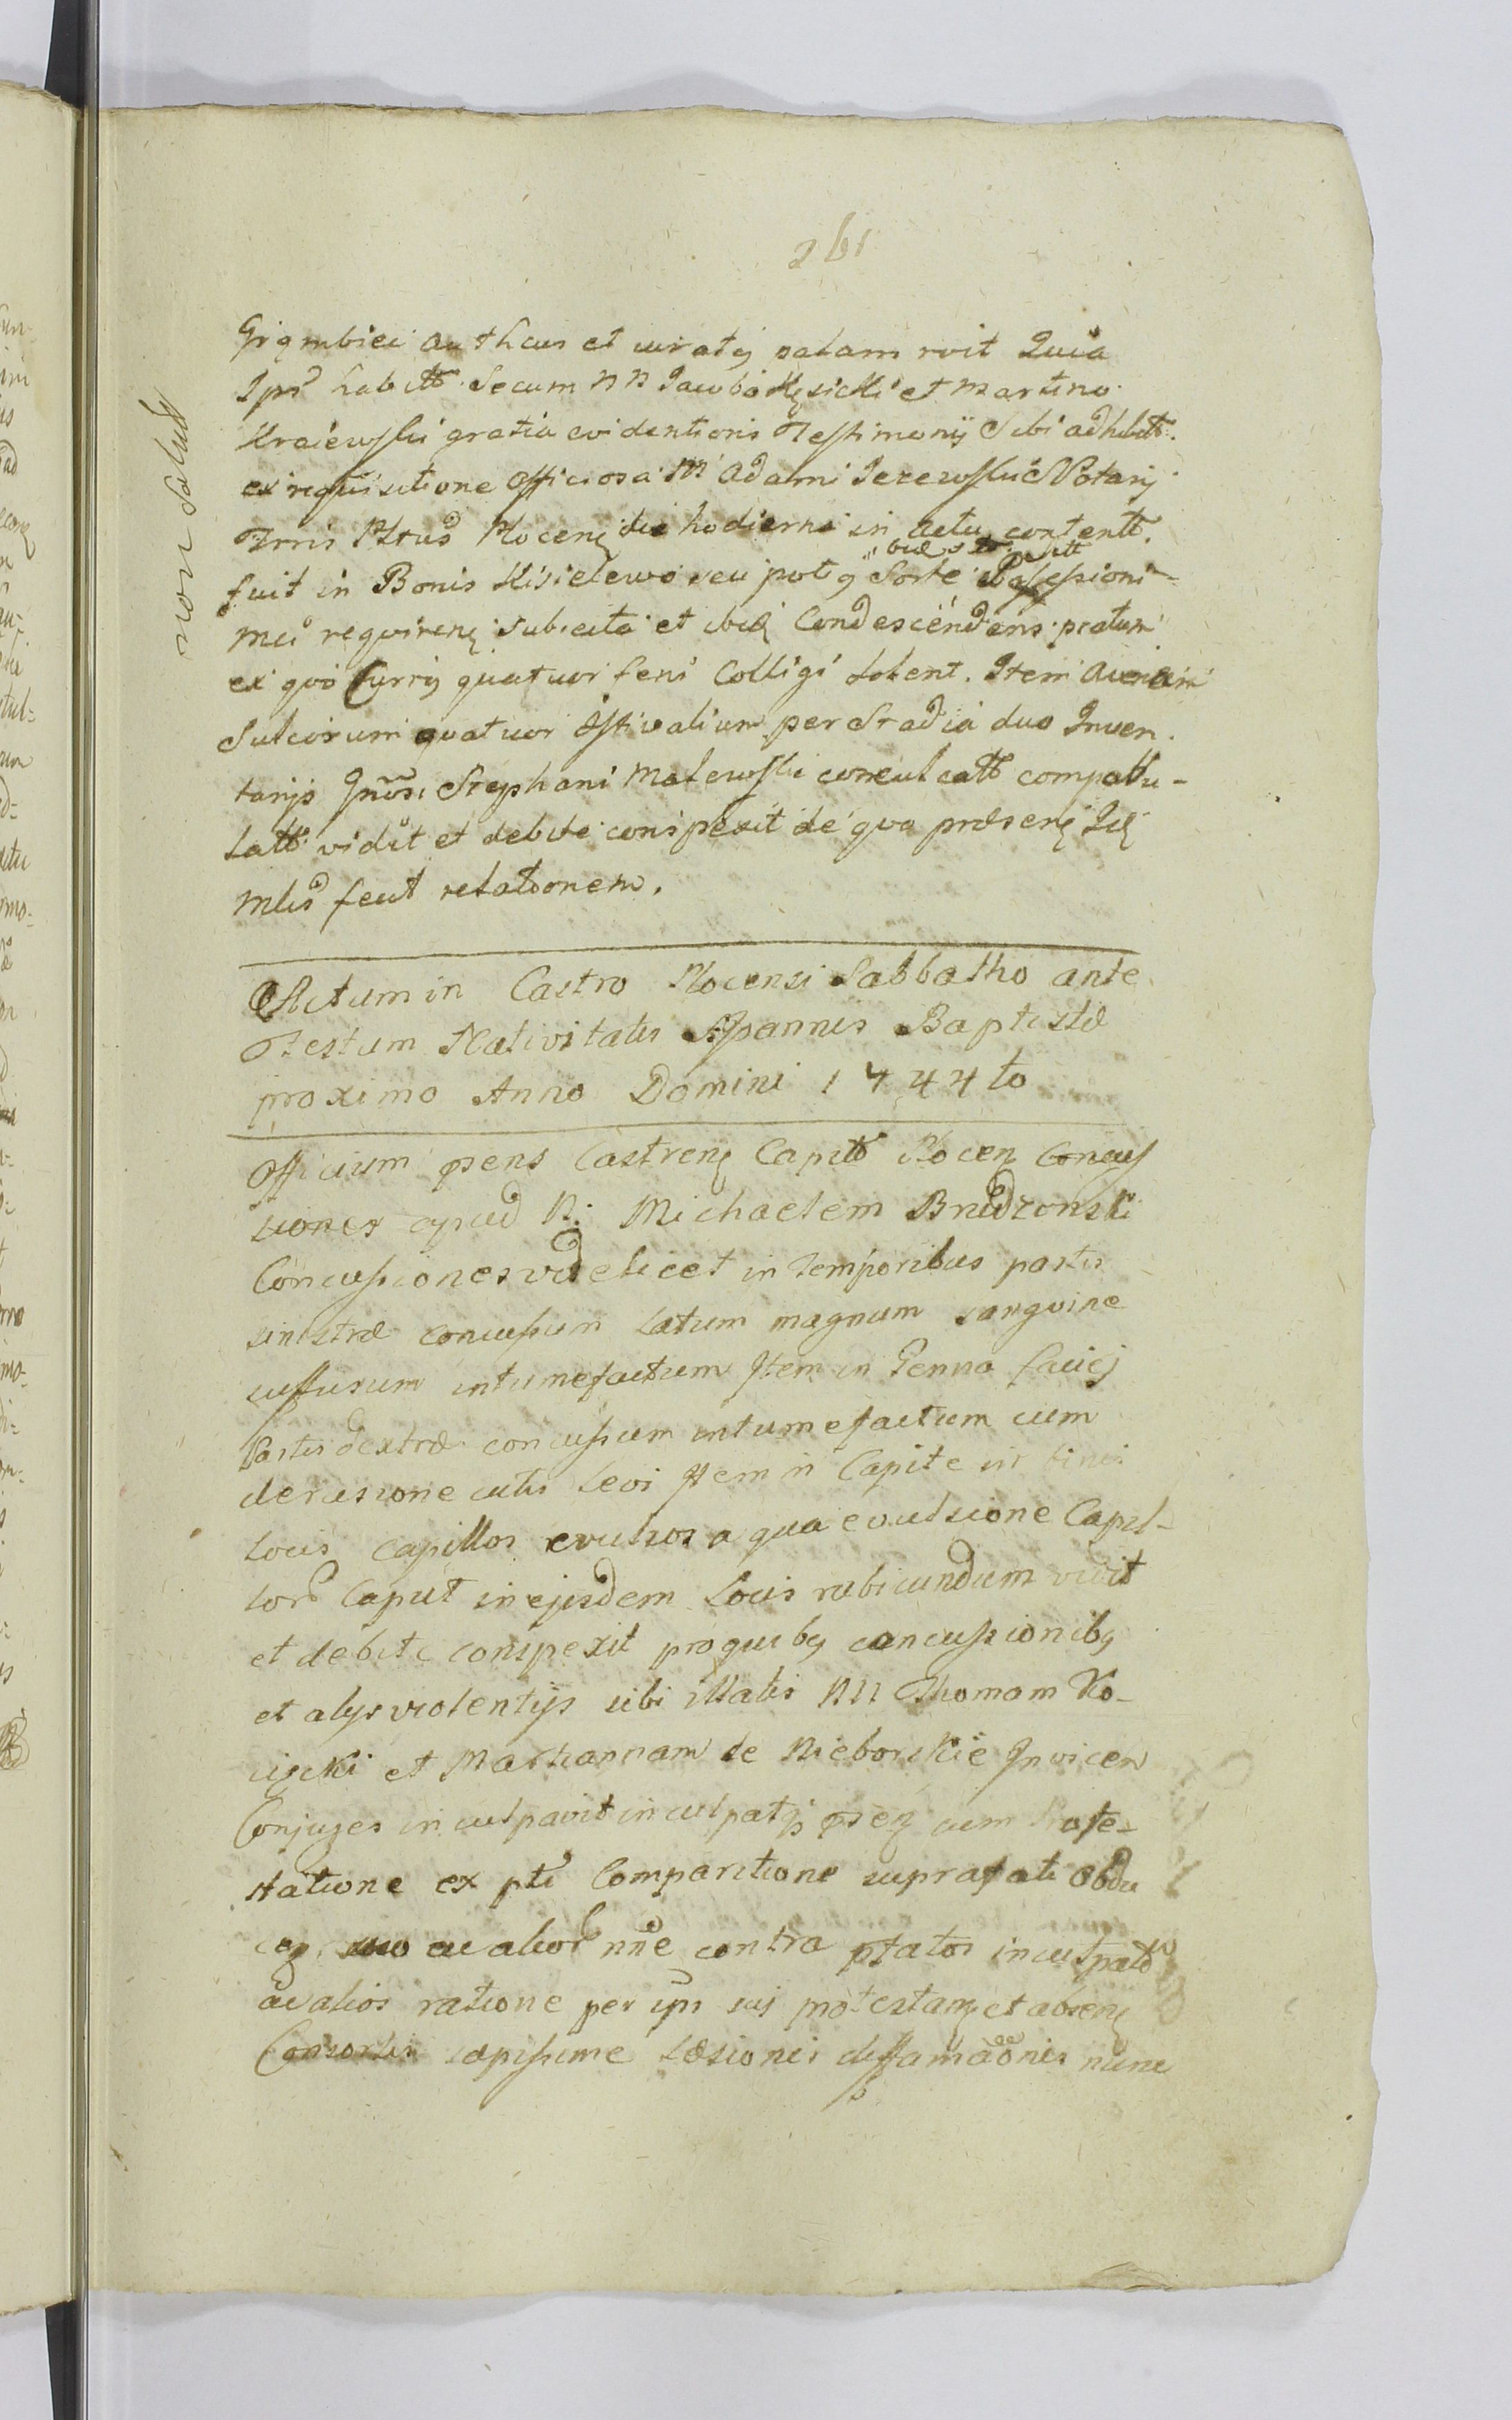 261
non solut
Grąmbiei authcus et iuratg palam rvit Quia
Ips habitt Secum NN Jacobo Kęsicki et Martino
Kraiewski gratia evidentioris Testimonij Sibi adhibitt.
ex requisitione officiosa M Adami Jezewski Notarij
Trris Plocen die hodierna in actu contentt.
fuit in Bonis Kisielewo seu potg Sorte Possessioni
Mci requirenę subiecta et ibidę Condescendens pratum
ex qvo Curry quatuor feni Colligi solent. Item avenam
Sulcorum qvatuor Estivalium per Stadia duo Inven-
tarijs Gnosi Stephani Malewski conculcatt compabu-
latt vidit et debite conspexit de qva præsenę
Mlis fecit relationem.
Actum in Castro Plocensi Sabbatho ante
Festum Nativitatis S. Joannis Baptistæ
proximo Anno Domini 1744to
Officium psens Castrenę Capitt Plocen Concus
siones apud N: Michaelem Brudzonski
Concussiones videlicet in temporibus partis
sinistræ concussum latum magnum sangvine
suffusum intumefactum Item in Genna faciej
Partis dextræ concussum intumefactum cum
derasione cutis levi Item in Capite in binis
locis capillos evulsos a qua evulsione Capil-
lor Caput in ejusdem Locis rubicundum vidit
et debite conspexit pro quibg concussionibg
et alys violentijs sibi illatis NN Thomam Ko-
cięcki et Mariannam de Nieborskie Invicem
Conjuges inculpavit inculpatg psen cum Prote-
statione ex pte Comparitione suprafati Obdu
cen suo ac alior nne contra pfatos inculpatos
ac alios ratione per ips suj protestanę et absenę
Consortis sæpissime læsionis diffamaonis nunc